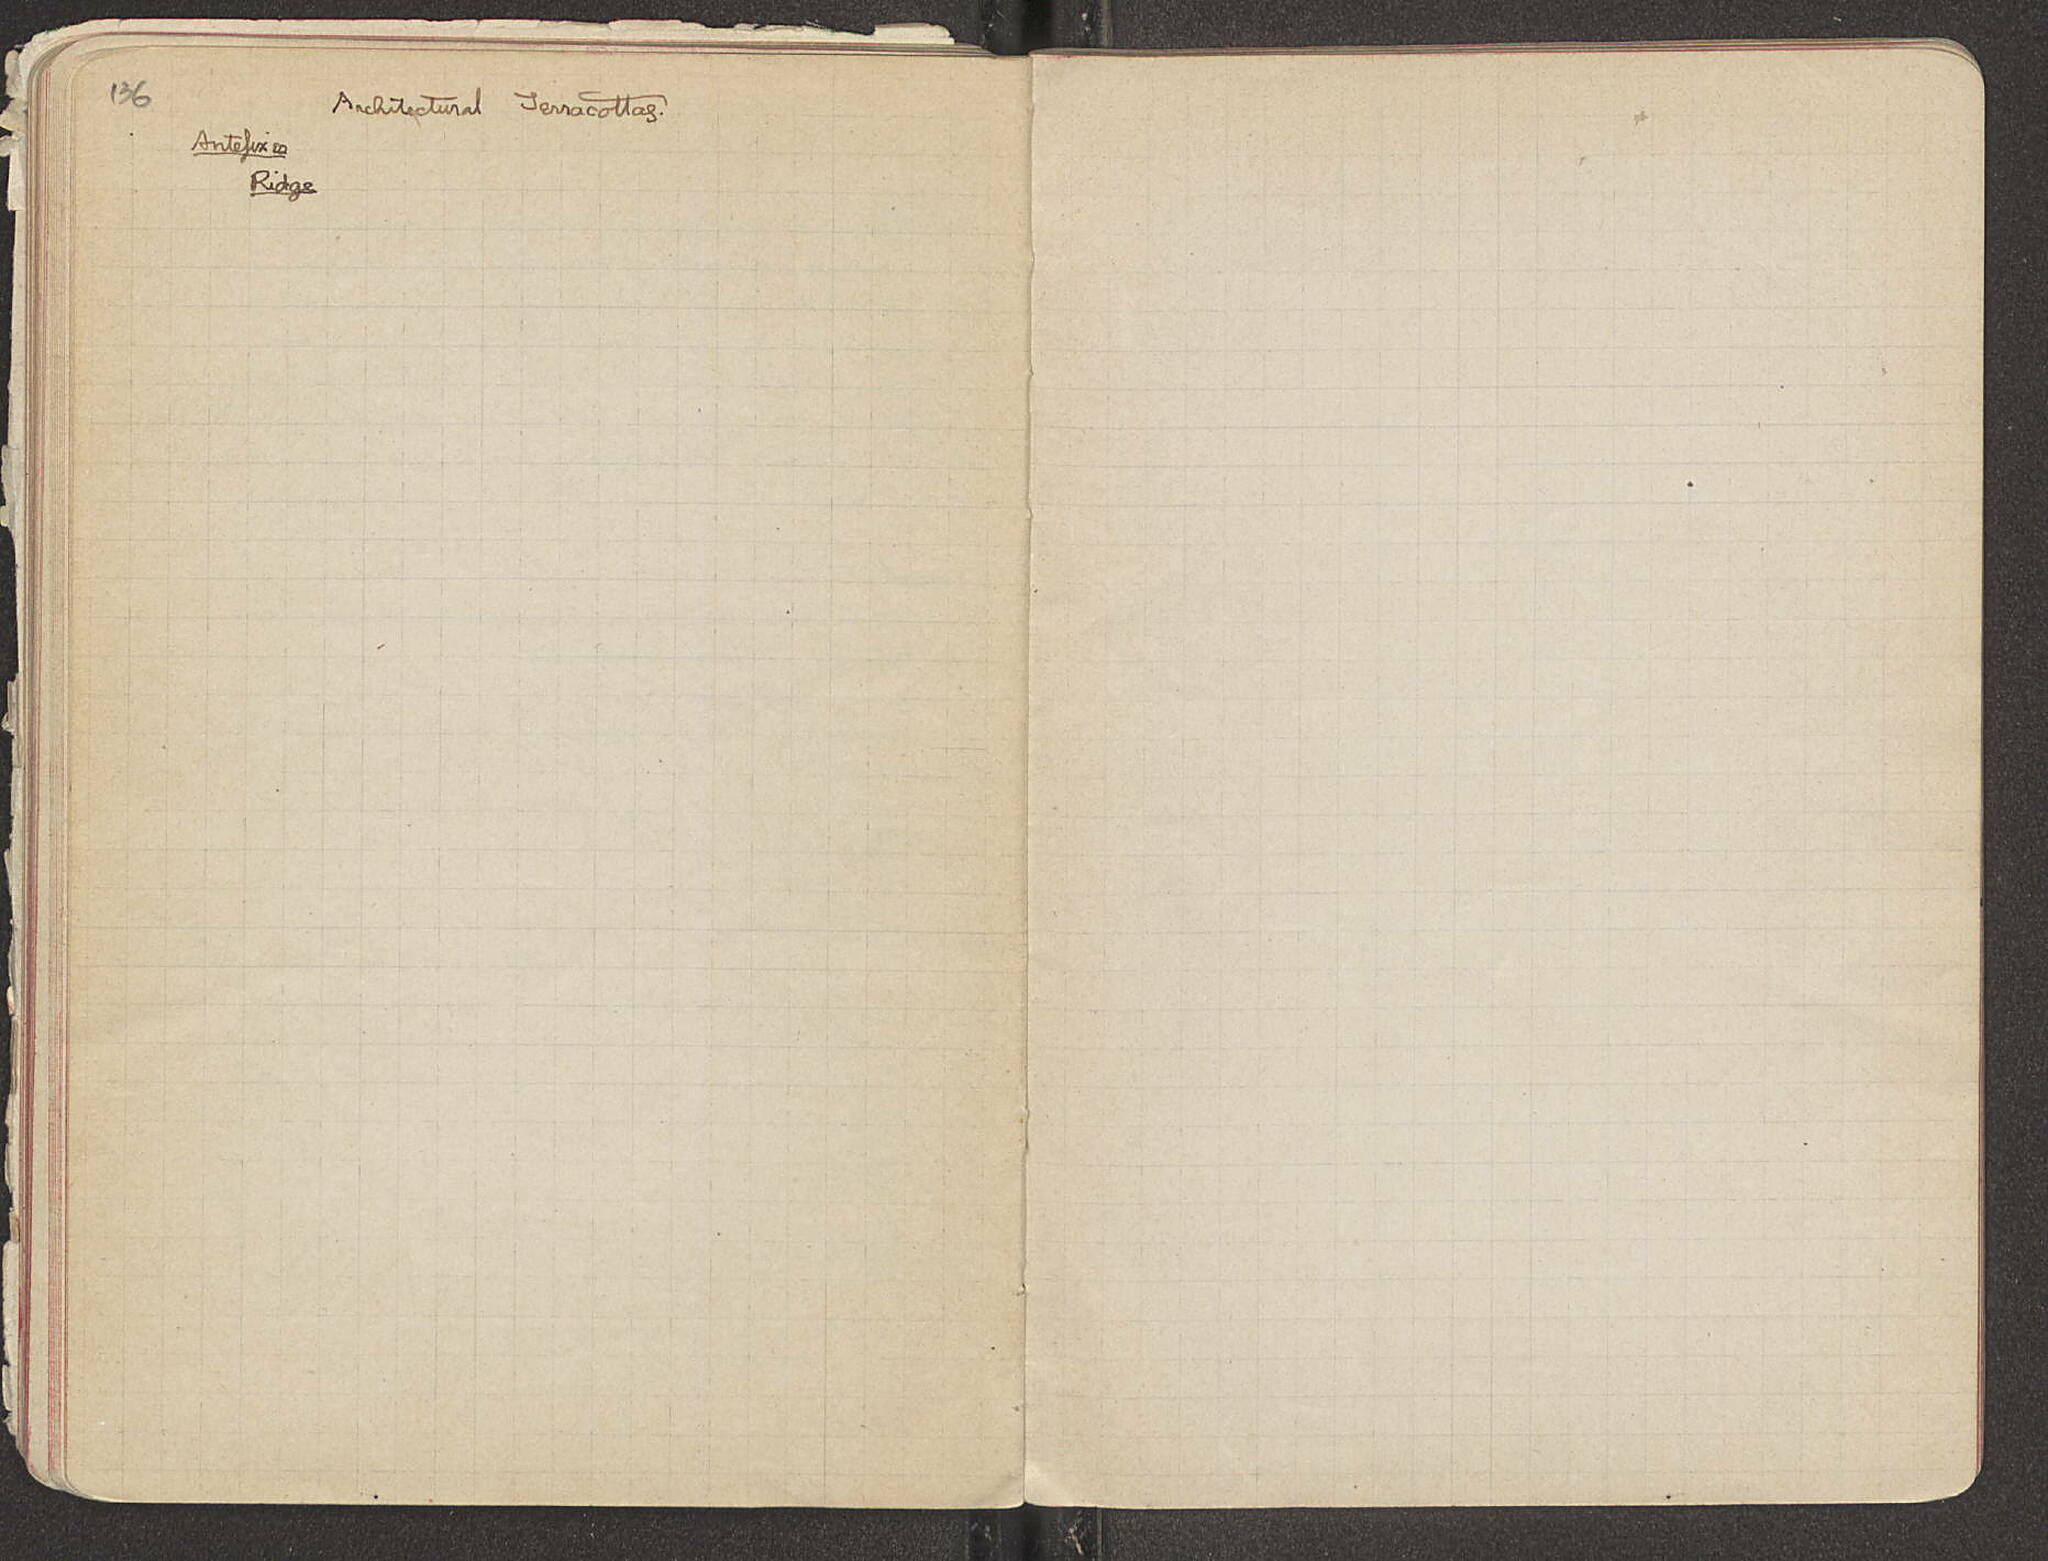 136
Architectural Terracottas.
Antefixes
Ridge